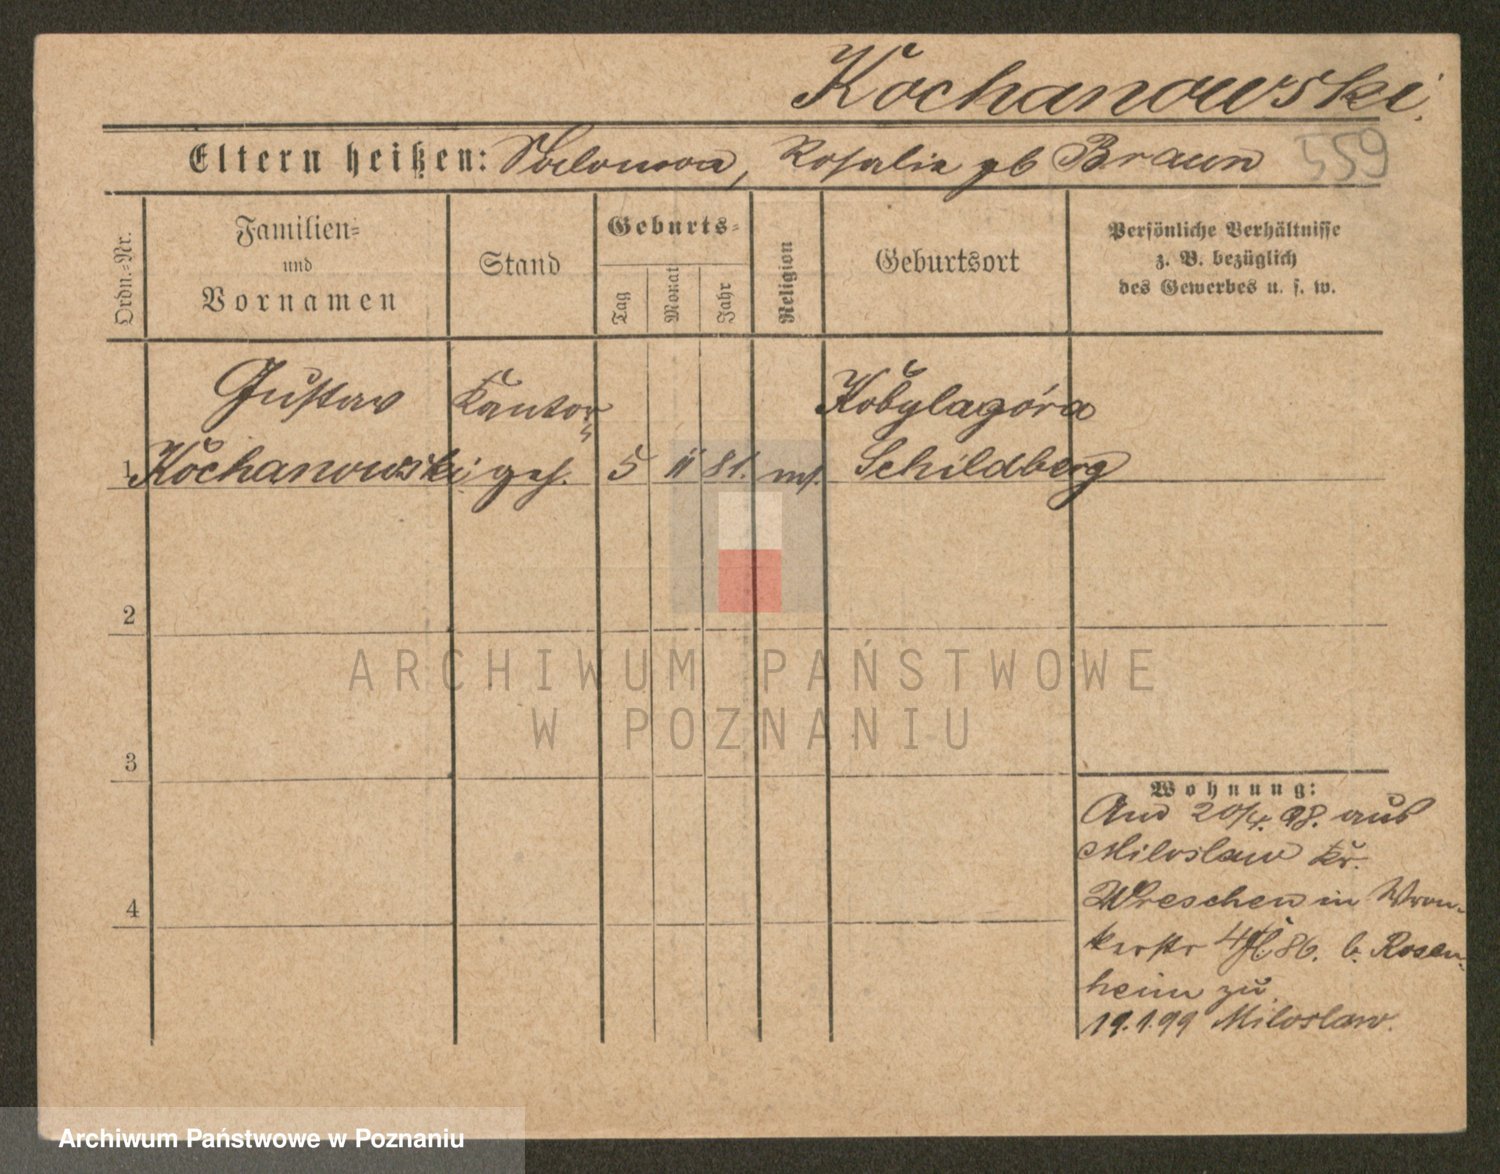 Kochanowski.
559
Eltern heißen: Salomon, Rosalie gb Braun
Ordn.=Nr.
Familien=
und
Vornamen
Stand
Geburts=
Tag
Monat
Jahr
Religion
Geburtsort
Persönliche Verhältnisse
z. B. bezüglich
des Gewerbes u. s. w.
Gustav Kantor Kobylagóra
1 Kochanowski geh. 5 11 81. mos. Schildberg
2
3
4
Wohnung:
20/4. 98. aus
Miloslaw Kr.
Wreschen in Wron-
kerstr 86. b. Rosen-
heim zu
19.1.99 Miloslaw.
ARCHIWUM PAŃSTWOWE
W POZNANIU
Archiwum Państwowe w Poznaniu